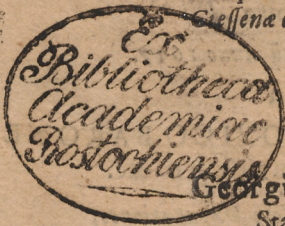 Giessenæ
Ex
Bibliotheca
Academiae
Rostochiensis
Georgi